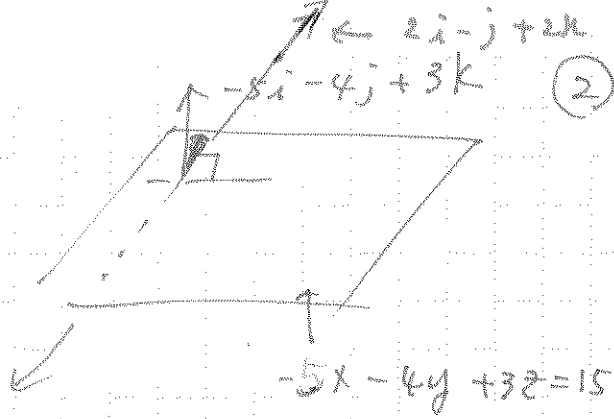 ← 2i - j + 2k
-5i - 4j + 3k
②
-5x - 4y + 3z = 15